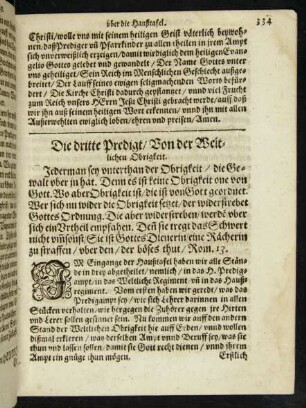 über die Haußtafel.
334
Christi / wolle vns mit seinem heiligen Geist väterlich beywoh-
nen / daß Prediger vñ Pfarrkinder zu allen theilen in jrem Ampt
sich vnverweißlich erzeigen / damit wirdiglich dem heiligen Evan-
gelio Gottes gelebet vnd gewandelt / Der Name Gottes vnter
vns geheiliget / Sein Reich im Menschlichen Geschlecht außge-
breitet / Der Lauff seines ewigen seligmachenden Worts befür-
dert / Die Kirche Christi dadurch gepflantzet / vnnd viel Frucht
zum Reich vnsers HErrn Jesu Christi gebracht werde / auff daß
wir jhn auß seinem heiligen Wort erkennen / vnnd jhn mit allen
Außerwehlten ewiglich loben / ehren vnd preisen / Amen.
Die dritte Predigt / Von der Welt-
lichen Obrigkeit.
Jederman sey vnterthan der Obrigkeit / die Ge-
walt vber jn hat. Denn es ist keine Obrigkeit one von
Gott. Wo aber Obrigkeit ist / die ist von Gott geordnet.
Wer sich nu wider die Obrigkeit setzet / der widerstrebet
Gottes Ordnung. Die aber widerstreben / werdē vber
sich ein Vrtheil empfahen. Deñ sie tregt das Schwert
nicht vmbsonst / Sie ist Gottes Dienerin eine Rächerin
zu straffen / vber den / der böses thut / Rom. 13.
IM Eingange der Haußtafel haben wir alle Stän-
de in drey abgetheilet / nemlich / in das H. Predig-
ampt / in das Weltliche Regiment / vñ in das Hauß-
regiment. Vom ersten haben wir geredt / was das
Predigampt sey / wie sich Lehrer darinnen in allen
Stücken verhalten / wie hergegen die Zuhörer gegen jre Hirten
vnd Lerer sollen gesinnet sein. Nu kommen wir auff den andern
Stand der Weltlichen Obrigkeit hie auff Erden / vnd wollen
dißmal erkleren / was derselben Ampt vnd Beruff sey / was sie
thun vnd lassen sollen / damit sie Gott recht dienen / vnnd jhrem
Ampt ein gnüge thun mögen.
Erstlich